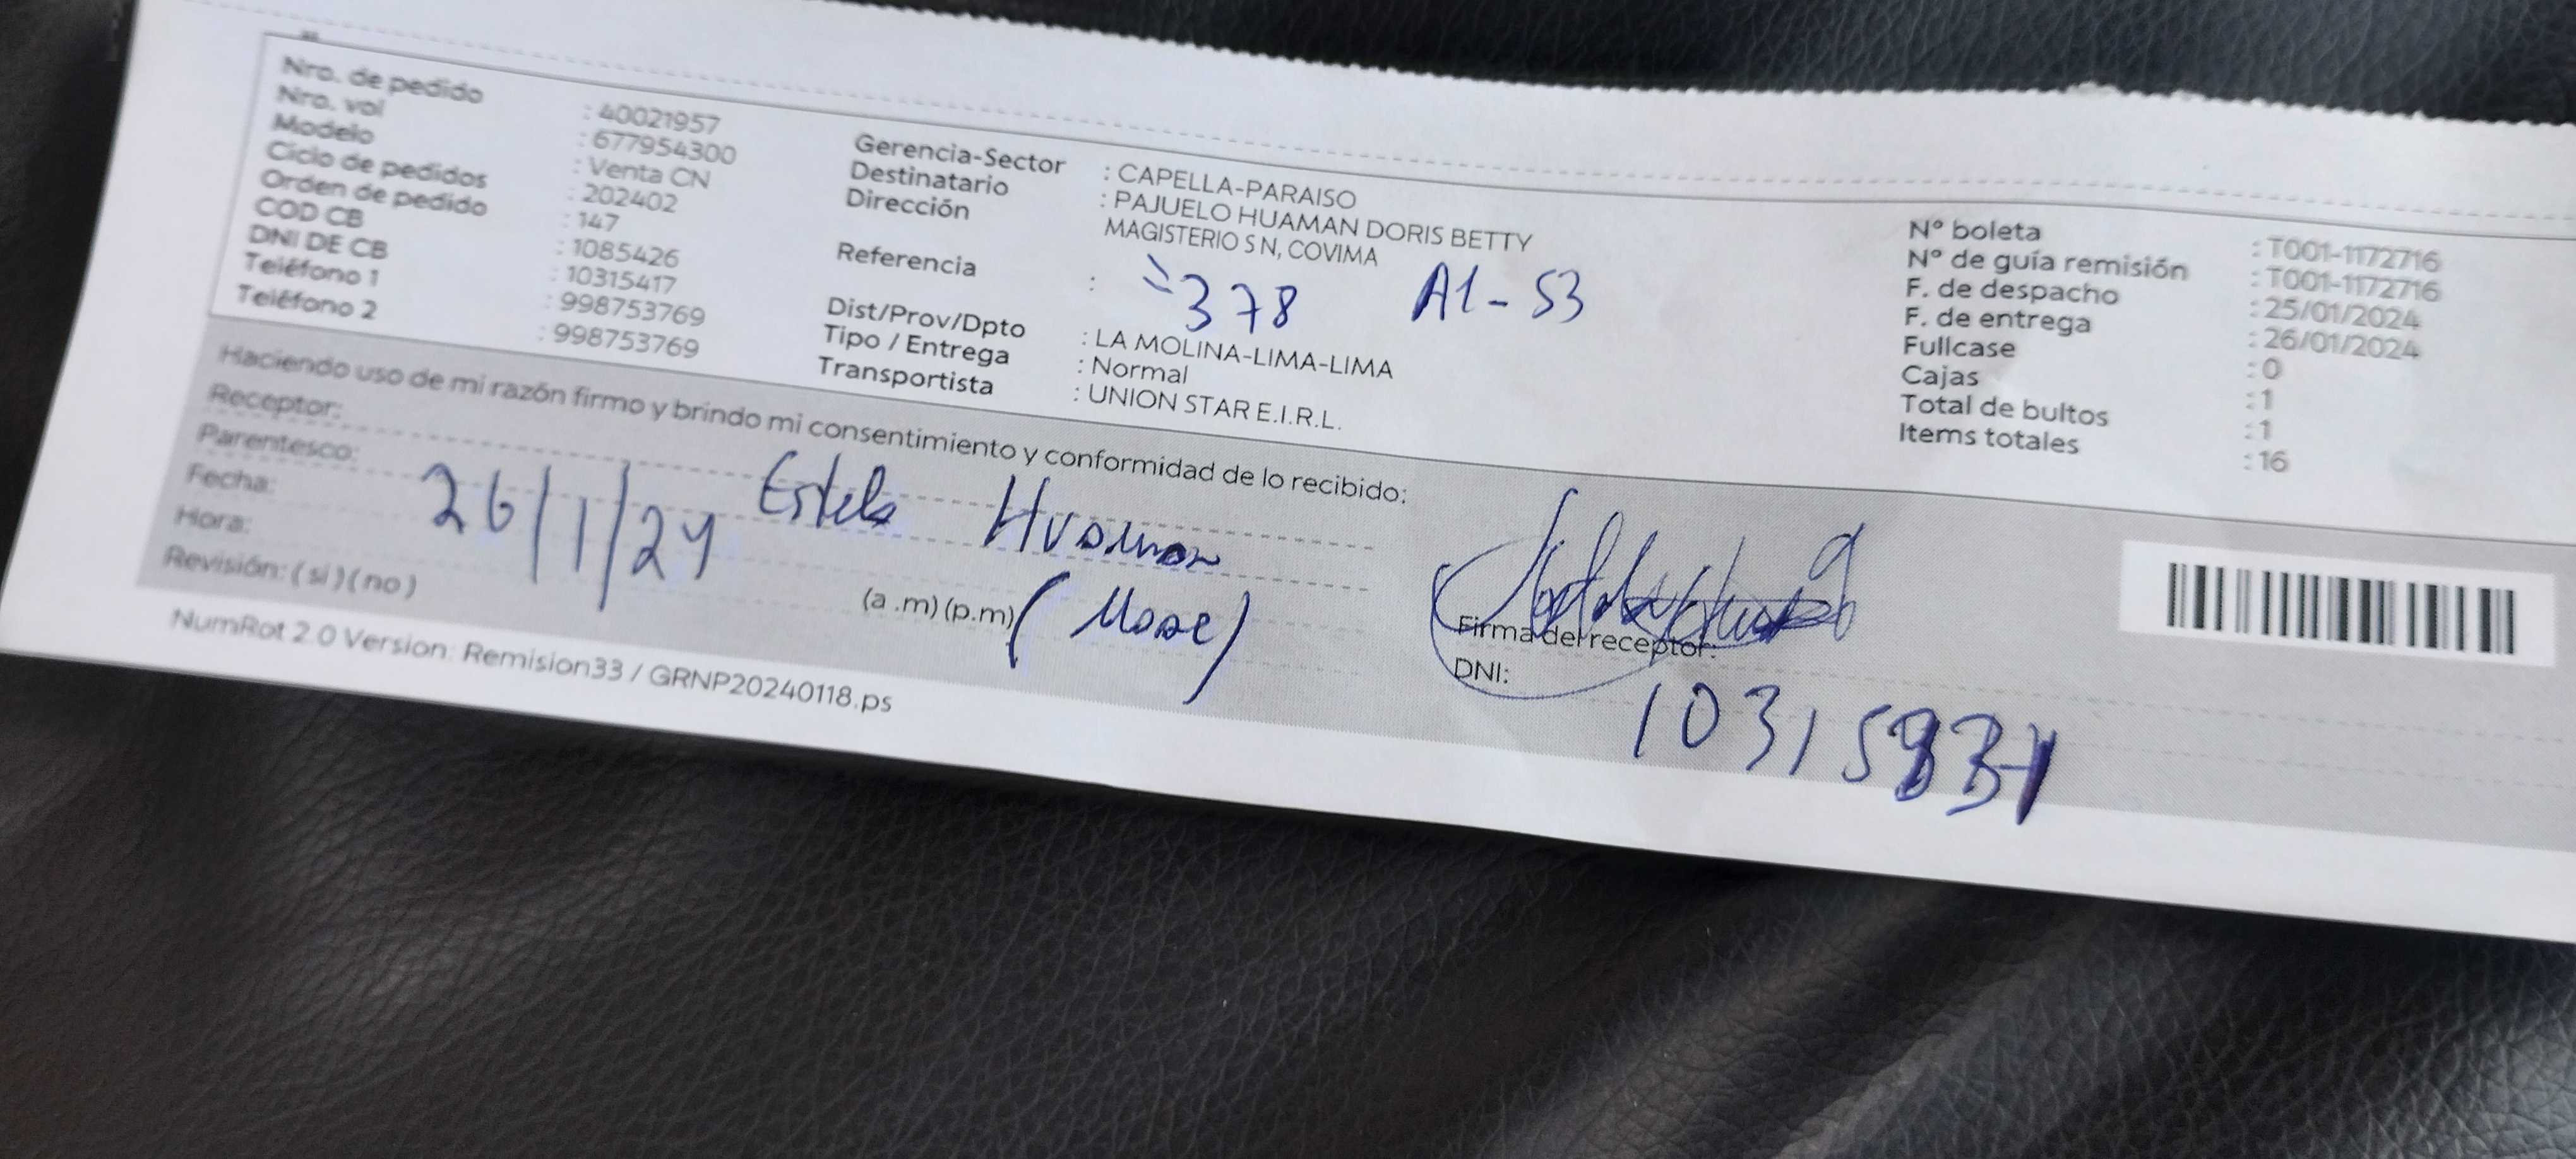 Nro. de pedido : 40021957
Nro. vol : 677954300
Modelo : Venta CN
Ciclo de pedidos : 202402
Orden de pedido : 147
COD CB : 1085426
DNI DE CB : 10315417
Teléfono 1 : 998753769
Teléfono 2 : 998753769
Gerencia-Sector : CAPELLA-PARAISO
Destinatario : PAJUELO HUAMAN DORIS BETTY
Dirección MAGISTERIO S N, COVIMA
Referencia :
378 A1-53
Dist/Prov/Dpto : LA MOLINA-LIMA-LIMA
Tipo / Entrega : Normal
Transportista : UNION STAR E.I.R.L.
N° boleta : T001-1172716
N° de guía remisión : T001-1172716
F. de despacho : 25/01/2024
F. de entrega : 26/01/2024
Fullcase : 0
Cajas : 1
Total de bultos : 1
Items totales : 16
Haciendo uso de mi razón firmo y brindo mi consentimiento y conformidad de lo recibido:
Receptor: Estela Huaman
Parentesco:
Fecha: 26/1/24
Hora: (a .m) (p.m)
Revisión: ( si ) ( no )
Firma del receptor:
DNI:
NumRot 2.0 Version: Remision33 / GRNP20240118.ps